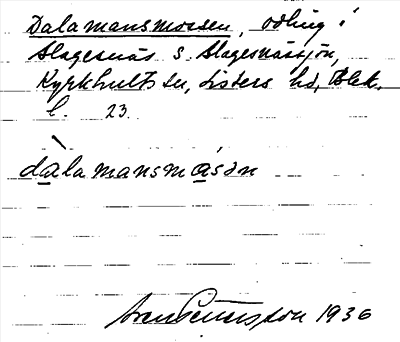 Dalamansmossen, odling i
Slagesnäs S. Slagesnässjön,
Kyrkhults sn, Listers hd, Blek.
l. 23
dàlamansmåsən
Sven Benson 1936